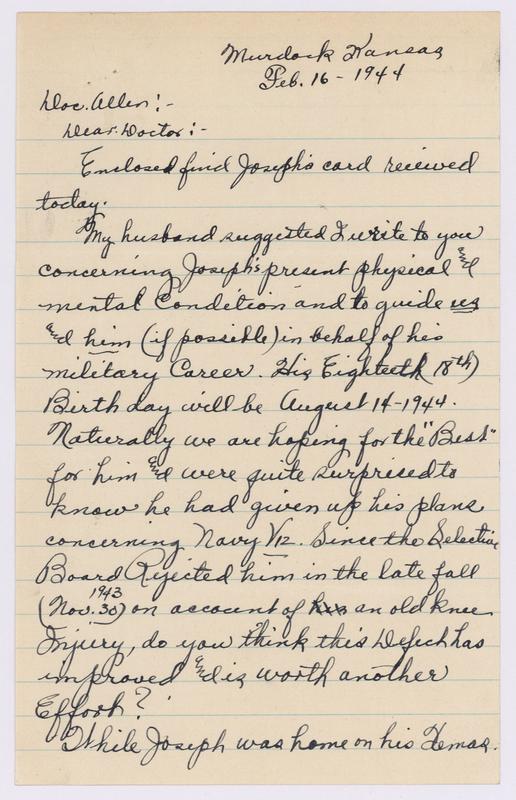 Murdock Kansas
Feb. 16 - 1944
Doc. Allen: -
Dear Doctor: -
Enclosed find Joseph's card recieved
today.
My husband suggested I write to you
concerning Joseph's present physical and
mental Condition and to guide us
and him (if possible) in behalf of his
military Career. His Eighteeth (18th)
Birthday will be August 14-1944.
Naturally we are hoping for the "Best"
for him and were quite surprised to
know he had given up his plans
concerning Navy V12. Since the Selective
Board Rejected him in the late fall
(Nov. 30) 1943 on account of his an old knee
Injury, do you think this Defect has
improved and is worth another
Effort?
While Joseph was home on his Xmas.